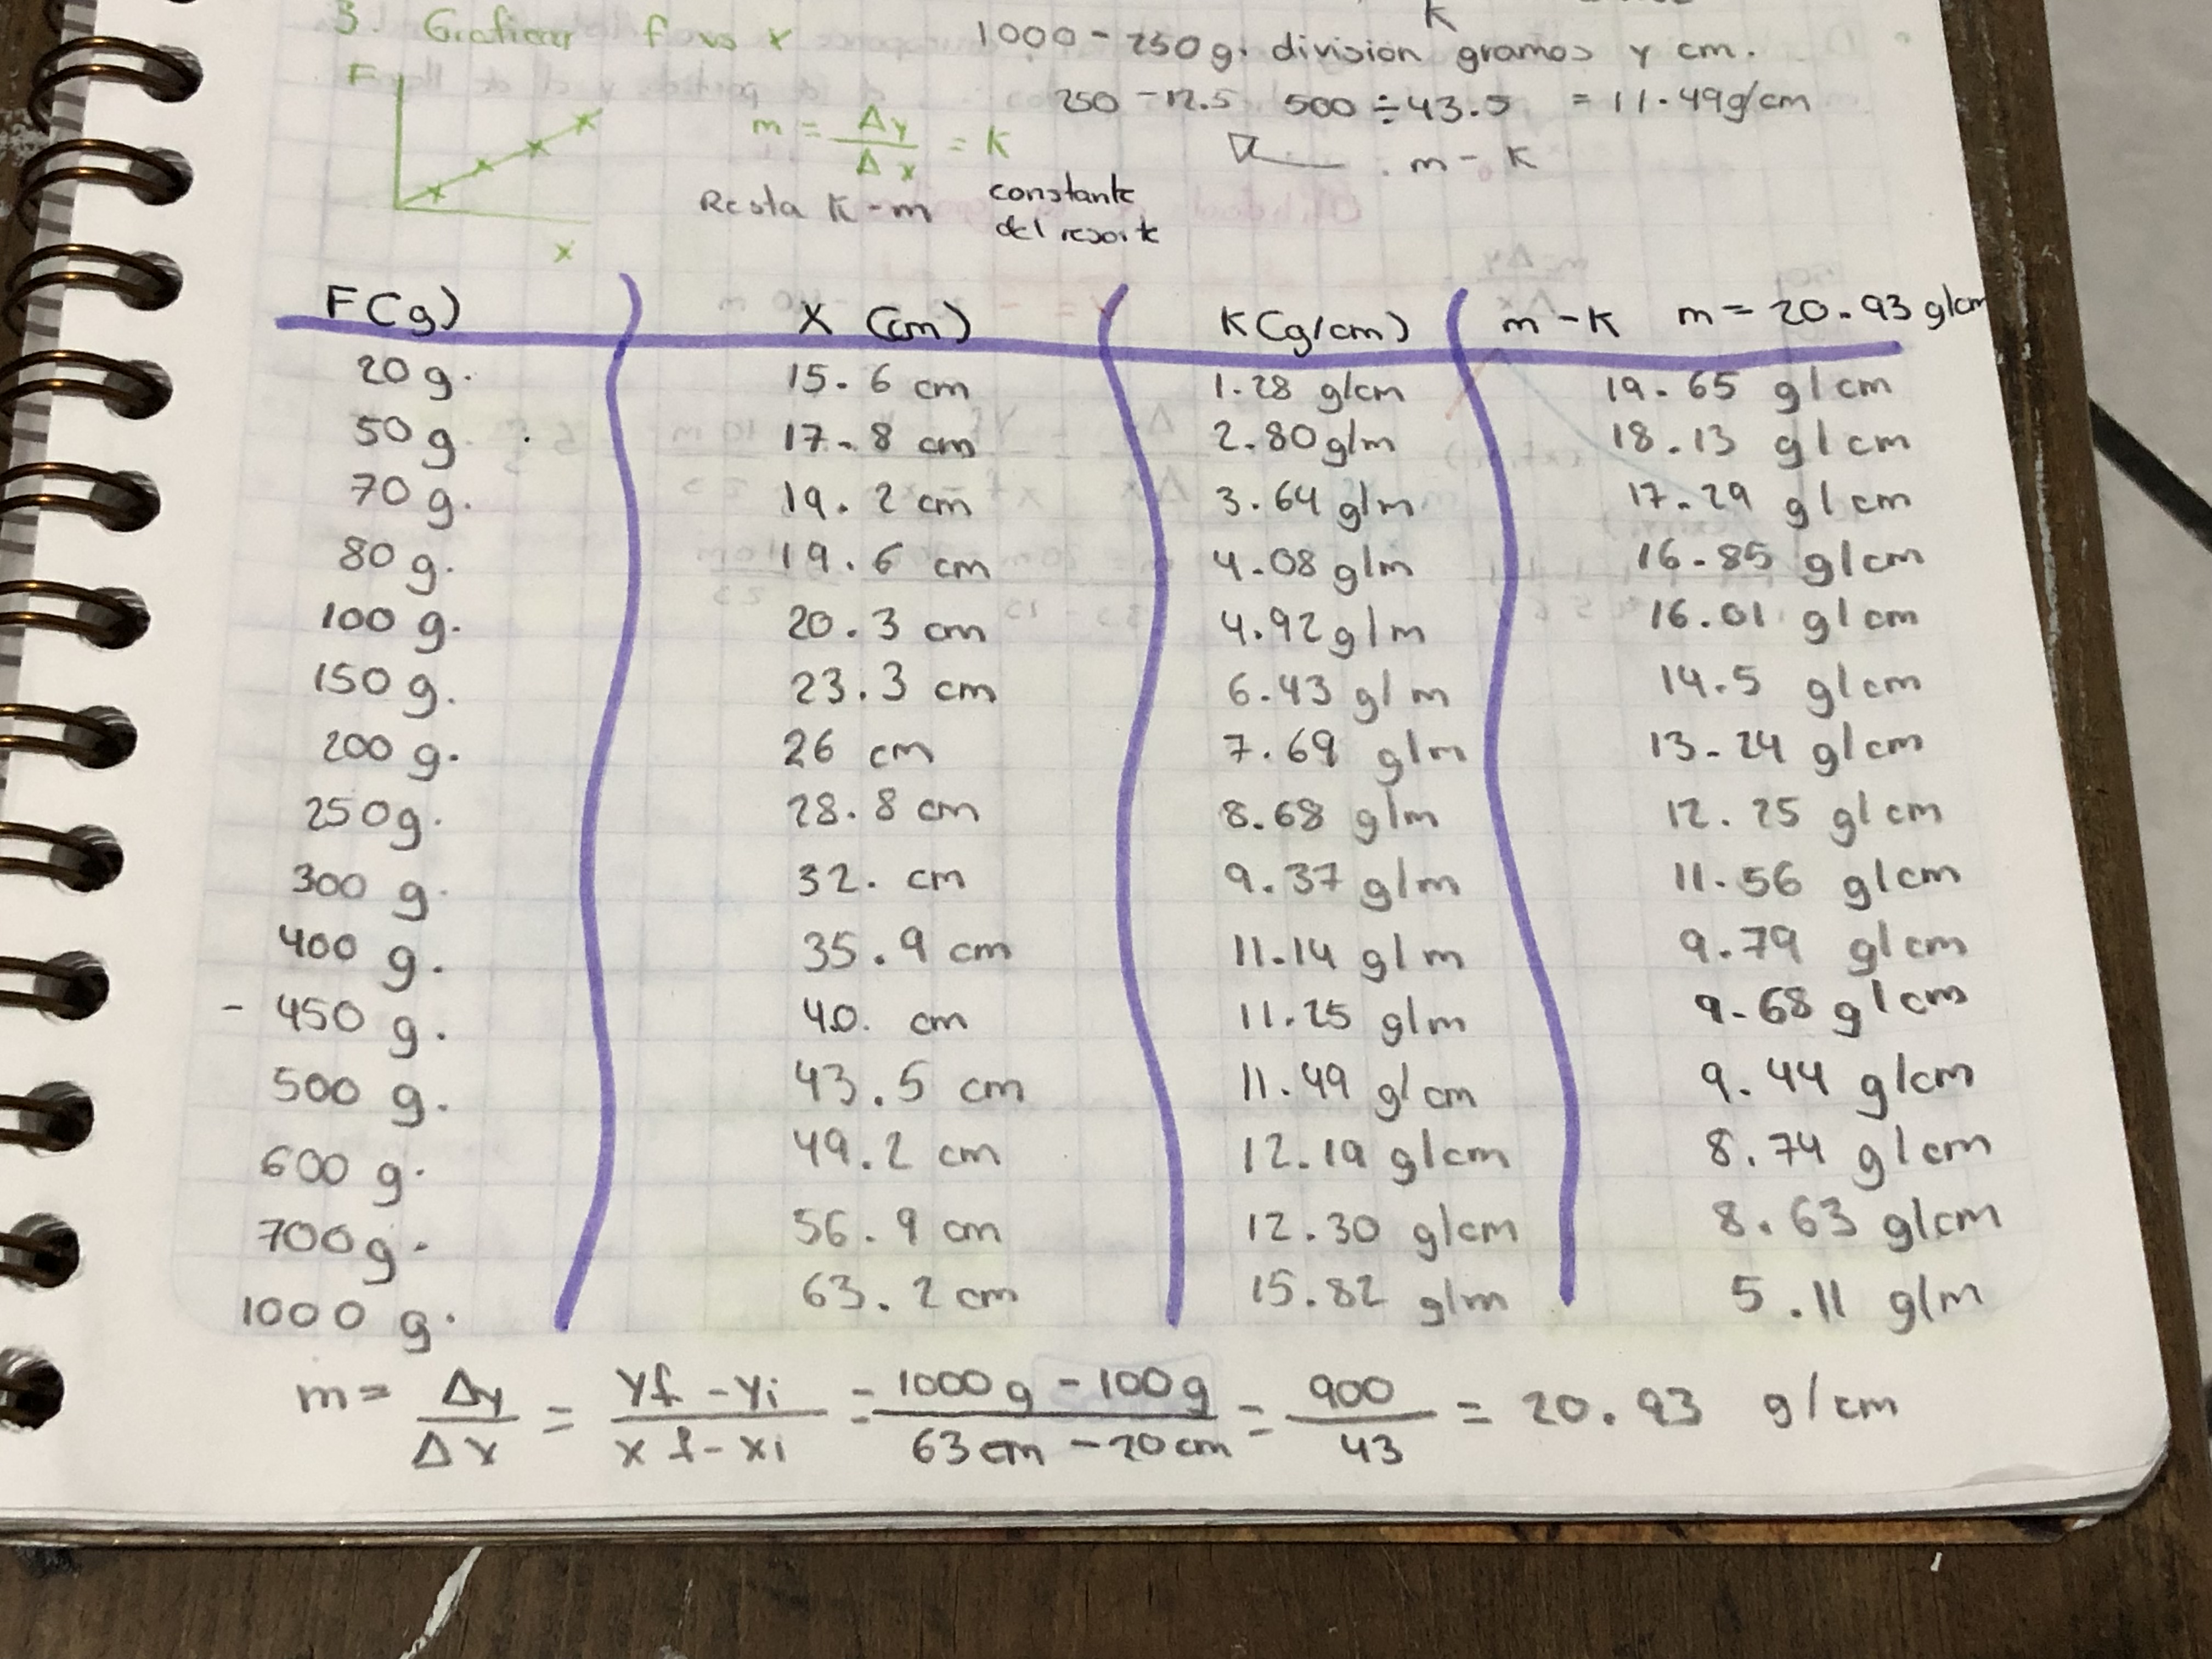 3. Graficar
F
x
1000 - 250 g. division gramos y cm.
250 - 12.5 500 ÷ 43.5 = 11.49g/cm
m = Δy / Δx = K
Resta K-m
constante
del resorte
m - K
F(g) X (cm) K(g/cm) m - K m = 20.93 g/cm
20 g. 15.6 cm 1.28 g/cm 19.65 g/cm
50 g. 17.8 cm 2.80 g/m 18.13 g/cm
70 g. 19.2 cm 3.64 g/m 17.29 g/cm
80 g. 19.6 cm 4.08 g/m 16.85 g/cm
100 g. 20.3 cm 4.92 g/m 16.01 g/cm
150 g. 23.3 cm 6.43 g/m 14.5 g/cm
200 g. 26 cm 7.69 g/m 13.24 g/cm
250g. 28.8 cm 8.68 g/m 12.25 g/cm
300 g. 32. cm 9.37 g/m 11.56 g/cm
400 g. 35.9 cm 11.14 g/m 9.79 g/cm
- 450 g. 40. cm 11.25 g/m 9.68 g/cm
500 g. 43.5 cm 11.49 g/cm 9.44 g/cm
600 g. 49.2 cm 12.19 g/cm 8.74 g/cm
700 g. 56.9 cm 12.30 g/cm 8.63 g/cm
1000 g. 63.2 cm 15.82 g/m 5.11 g/m
m = Δy / Δx = yf - yi / xf - xi = 1000 g - 100 g / 63 cm - 20 cm = 900 / 43 = 20.93 g/cm